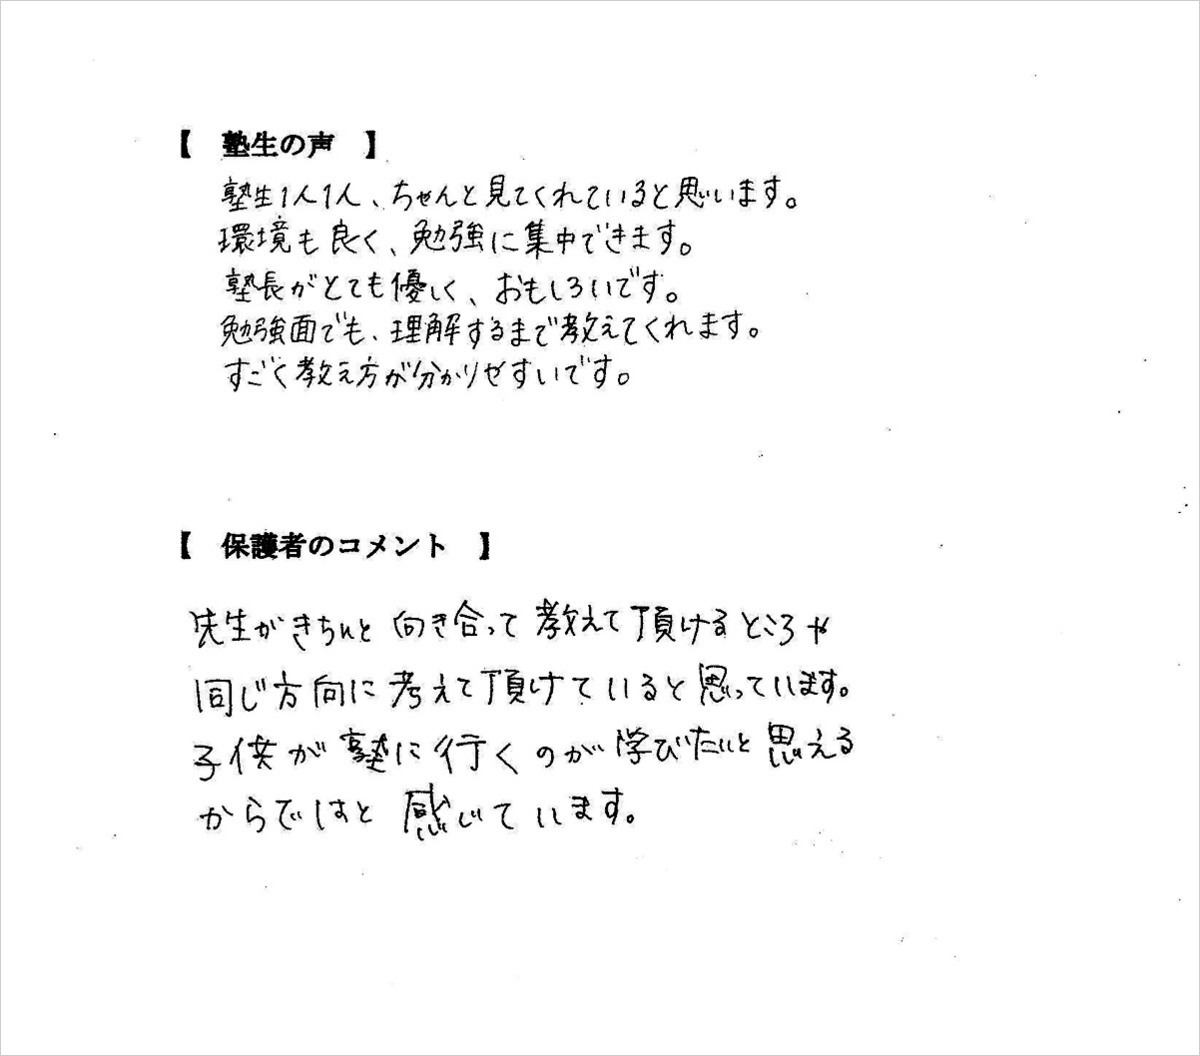 【 塾生の声 】
塾生1人1人、ちゃんと見てくれていると思います。
環境も良く、勉強に集中できます。
塾長がとても優しく、おもしろいです。
勉強面でも、理解するまで教えてくれます。
すごく教え方が分かりやすいです。
【 保護者のコメント 】
先生がきちんと向き合って教えて頂けるところや
同じ方向に考えて頂けていると思っています。
子供が塾に行くのが学びたいと思える
からではと感じています。